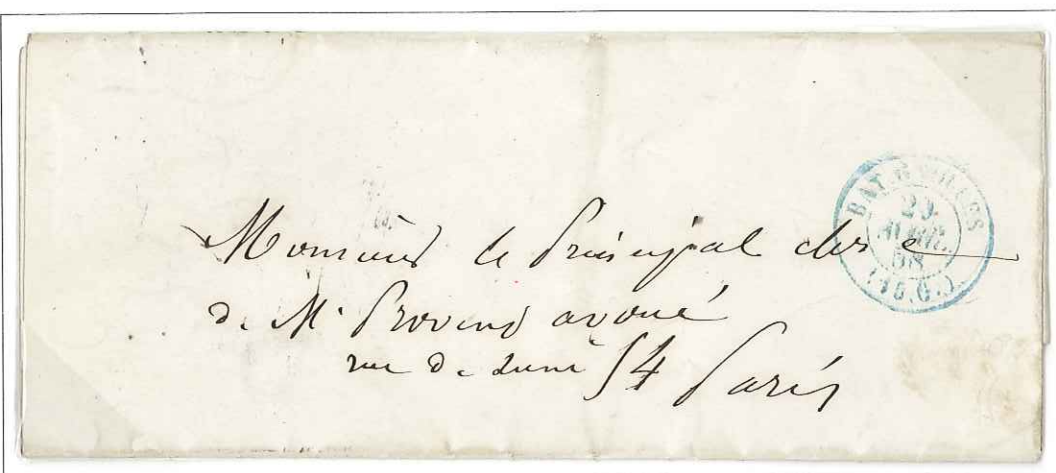 BATIGNOLLES
29
58
Monsieur le Principal clerc
de Mr. Provent avoué
rue de 54 Paris